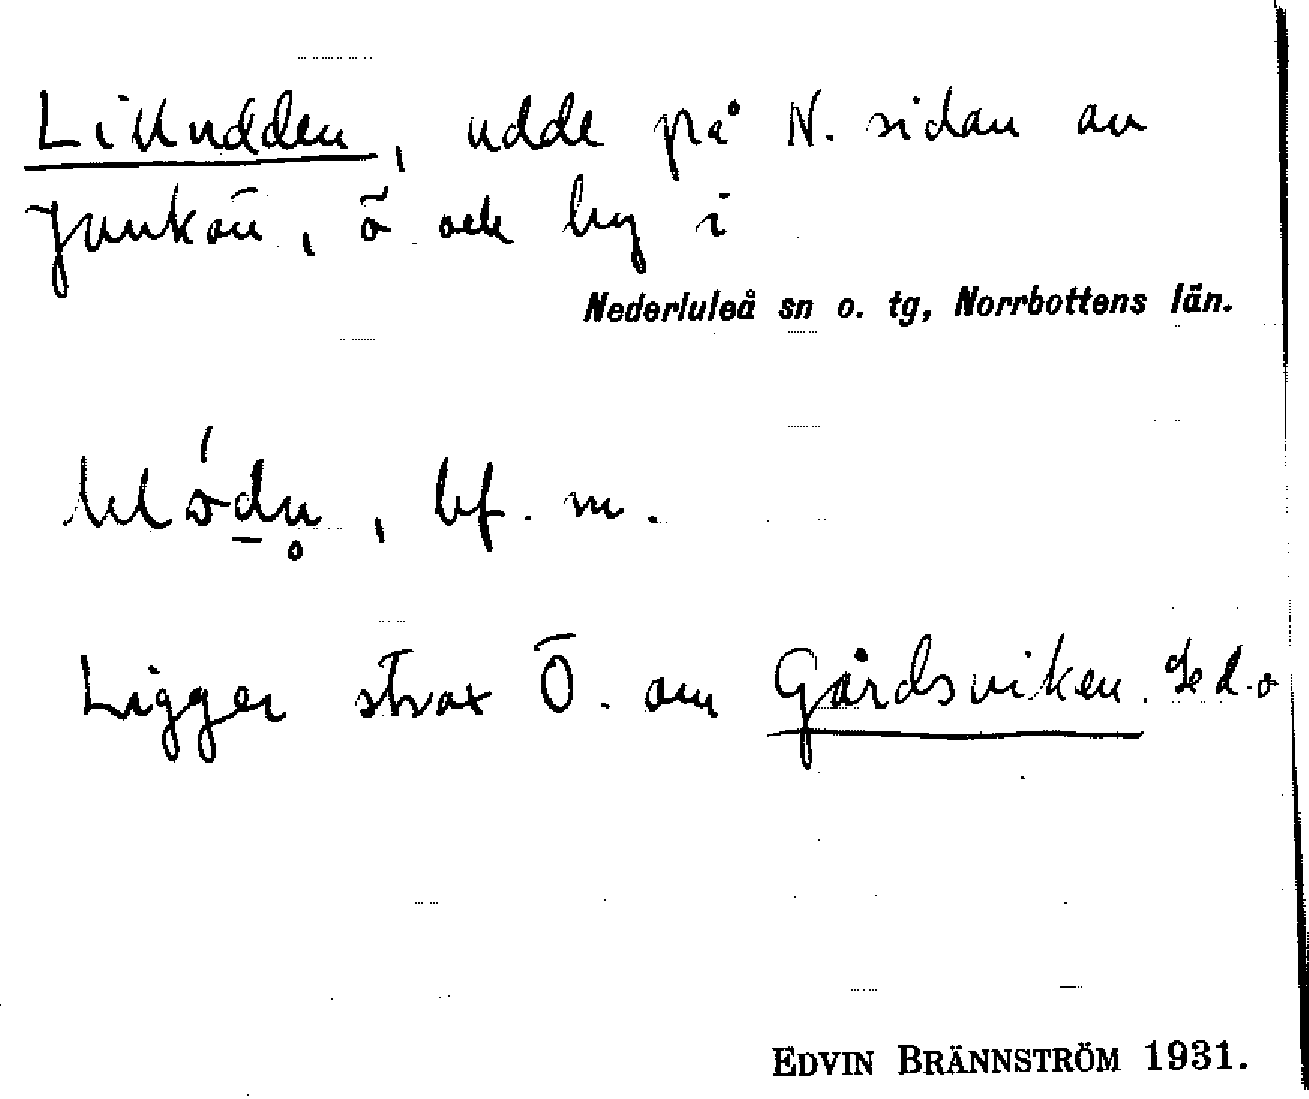 Lilludden, udde på N. sidan av
Junkön, ö och by i
Nederluleå sn o. tg, Norrbottens län.
bf. m.
Ligger strax Ö. om Gårdsviken. Se d. o
EDVIN BRÄNNSTRÖM 1931.